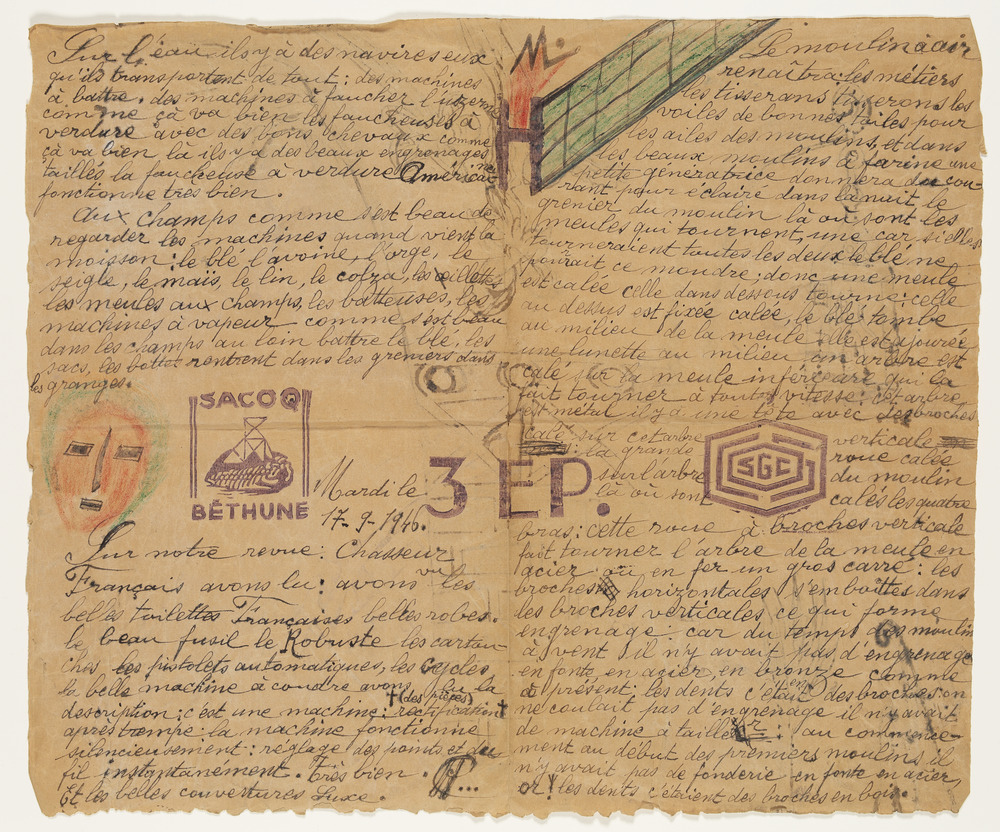 Sur l'eau ils y à des navires eux
qu'ils transportent de tout : des machines
à battre, des machines à faucher l'uzerne
comme çà va bien les faucheuses à
verdure avec des bons chevaux comme
çà va bien là ils y à des beaux engrenages
taillés la faucheuse à verdure Américai-
ne
fonctionne très bien.
Aux champs comme s'est beau de
regarder les machines quand vient la
moisson : le blé l'avoine, l'orge, le
seigle, le maïs, le lin, le colza, les œillettes
les meules aux champs, les batteuses, les
machines à vapeur comme s'est beau
dans les champs au loin battre le blé, les
sacs, les bottes rentrent dans les greniers dans
les granges.
SACOQ
BÉTHUNE
Mardi le
17-9-1946.
Sur notre revue : Chasseur
Français avons lu : avons vu les
belles toilettes Françaises belles robes.
le beau fusil le Robuste les cartou-
ches les pistolets automatiques, les cycles
la belle machine à coudre avons lu la
description : c'est une machine : rectification
(des pièces)
après trempe : la machine fonctionne
silencieusement : réglage des points et du
fil instantanément. Très bien.
Et les belles couvertures Luxe.
M.
H
3 EP.
SGC
Le moulin à air
renaîtra les métiers
les tisserans tisserons les
voiles de bonnes toiles pour
les ailes des moulins, et dans
les beaux moulins à farine une
petite génératrice donnera du cou-
rant pour éclairé dans la nuit le
grenier du moulin là où sont les
meules qui tournent, une car si elles
tourneraient toutes les deux le blé ne
pourait ce moudre : donc une meule
est calée celle dans dessous tourne : celle
au dessus est fixée calée, le blé tombe
au milieu de la meule elle est ajourée
une lunette au milieu un arbre est
calé sur la meule inférieure qui la
fait tourner à toute vitesse : cet arbre
est métal il y à une tête avec des broches
calé sur cet arbre verticale
la grande roue calée
sur l'arbre du moulin
là où sont calés les quatre
bras : cette roue à broches verticale
fait tourner l'arbre de la meule en
acier ou en fer un gros carré : les
broches horizontales s'emboîttes dans
les broches verticales ce qui forme
engrenage : car du temps des moulins
à vent il n'y avait pas d'engrenage
en fonte, en acier, en bronze comme
à présent ; les dents c'était des broches : on
ne coulait pas d'engrenage il n'y avait
de machine à tailler : au commence-
ment au début des premiers moulins il
n'y avait pas de fonderie en fonte en acier,
or ! les dents c'étaient des broches en bois.